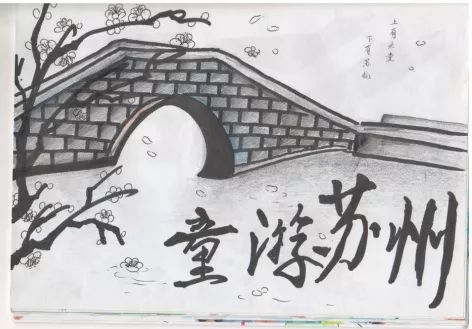 上有天堂
下有苏杭
童游苏州